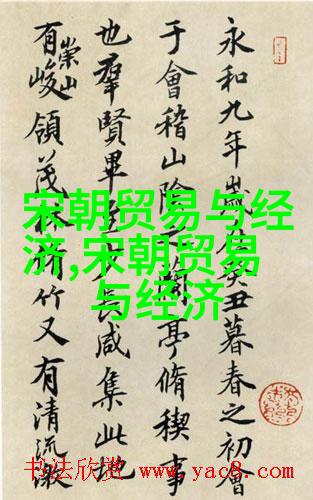 永和九年歲在癸丑暮春之初會
于會稽山陰之蘭亭脩稧事
也羣賢畢至少長咸集此地
有崇山峻領茂林脩竹又有清流激
宋朝贸易与经
济,宋朝贸易
与经济
书法欣赏 www.yac8.com